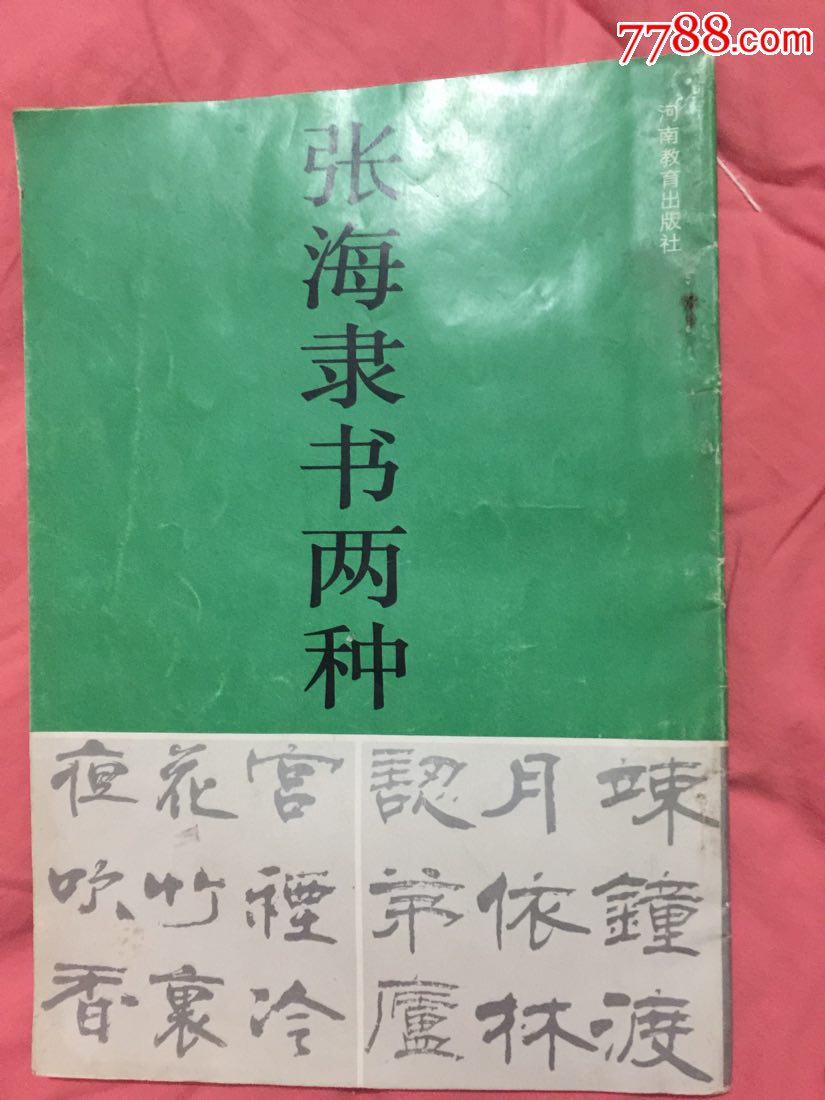 7788.com
河南教育出版社
张海隶书两种
竦鐘渡
月依林
認茅廬
宫禋冷
花竹裏
夜吹香